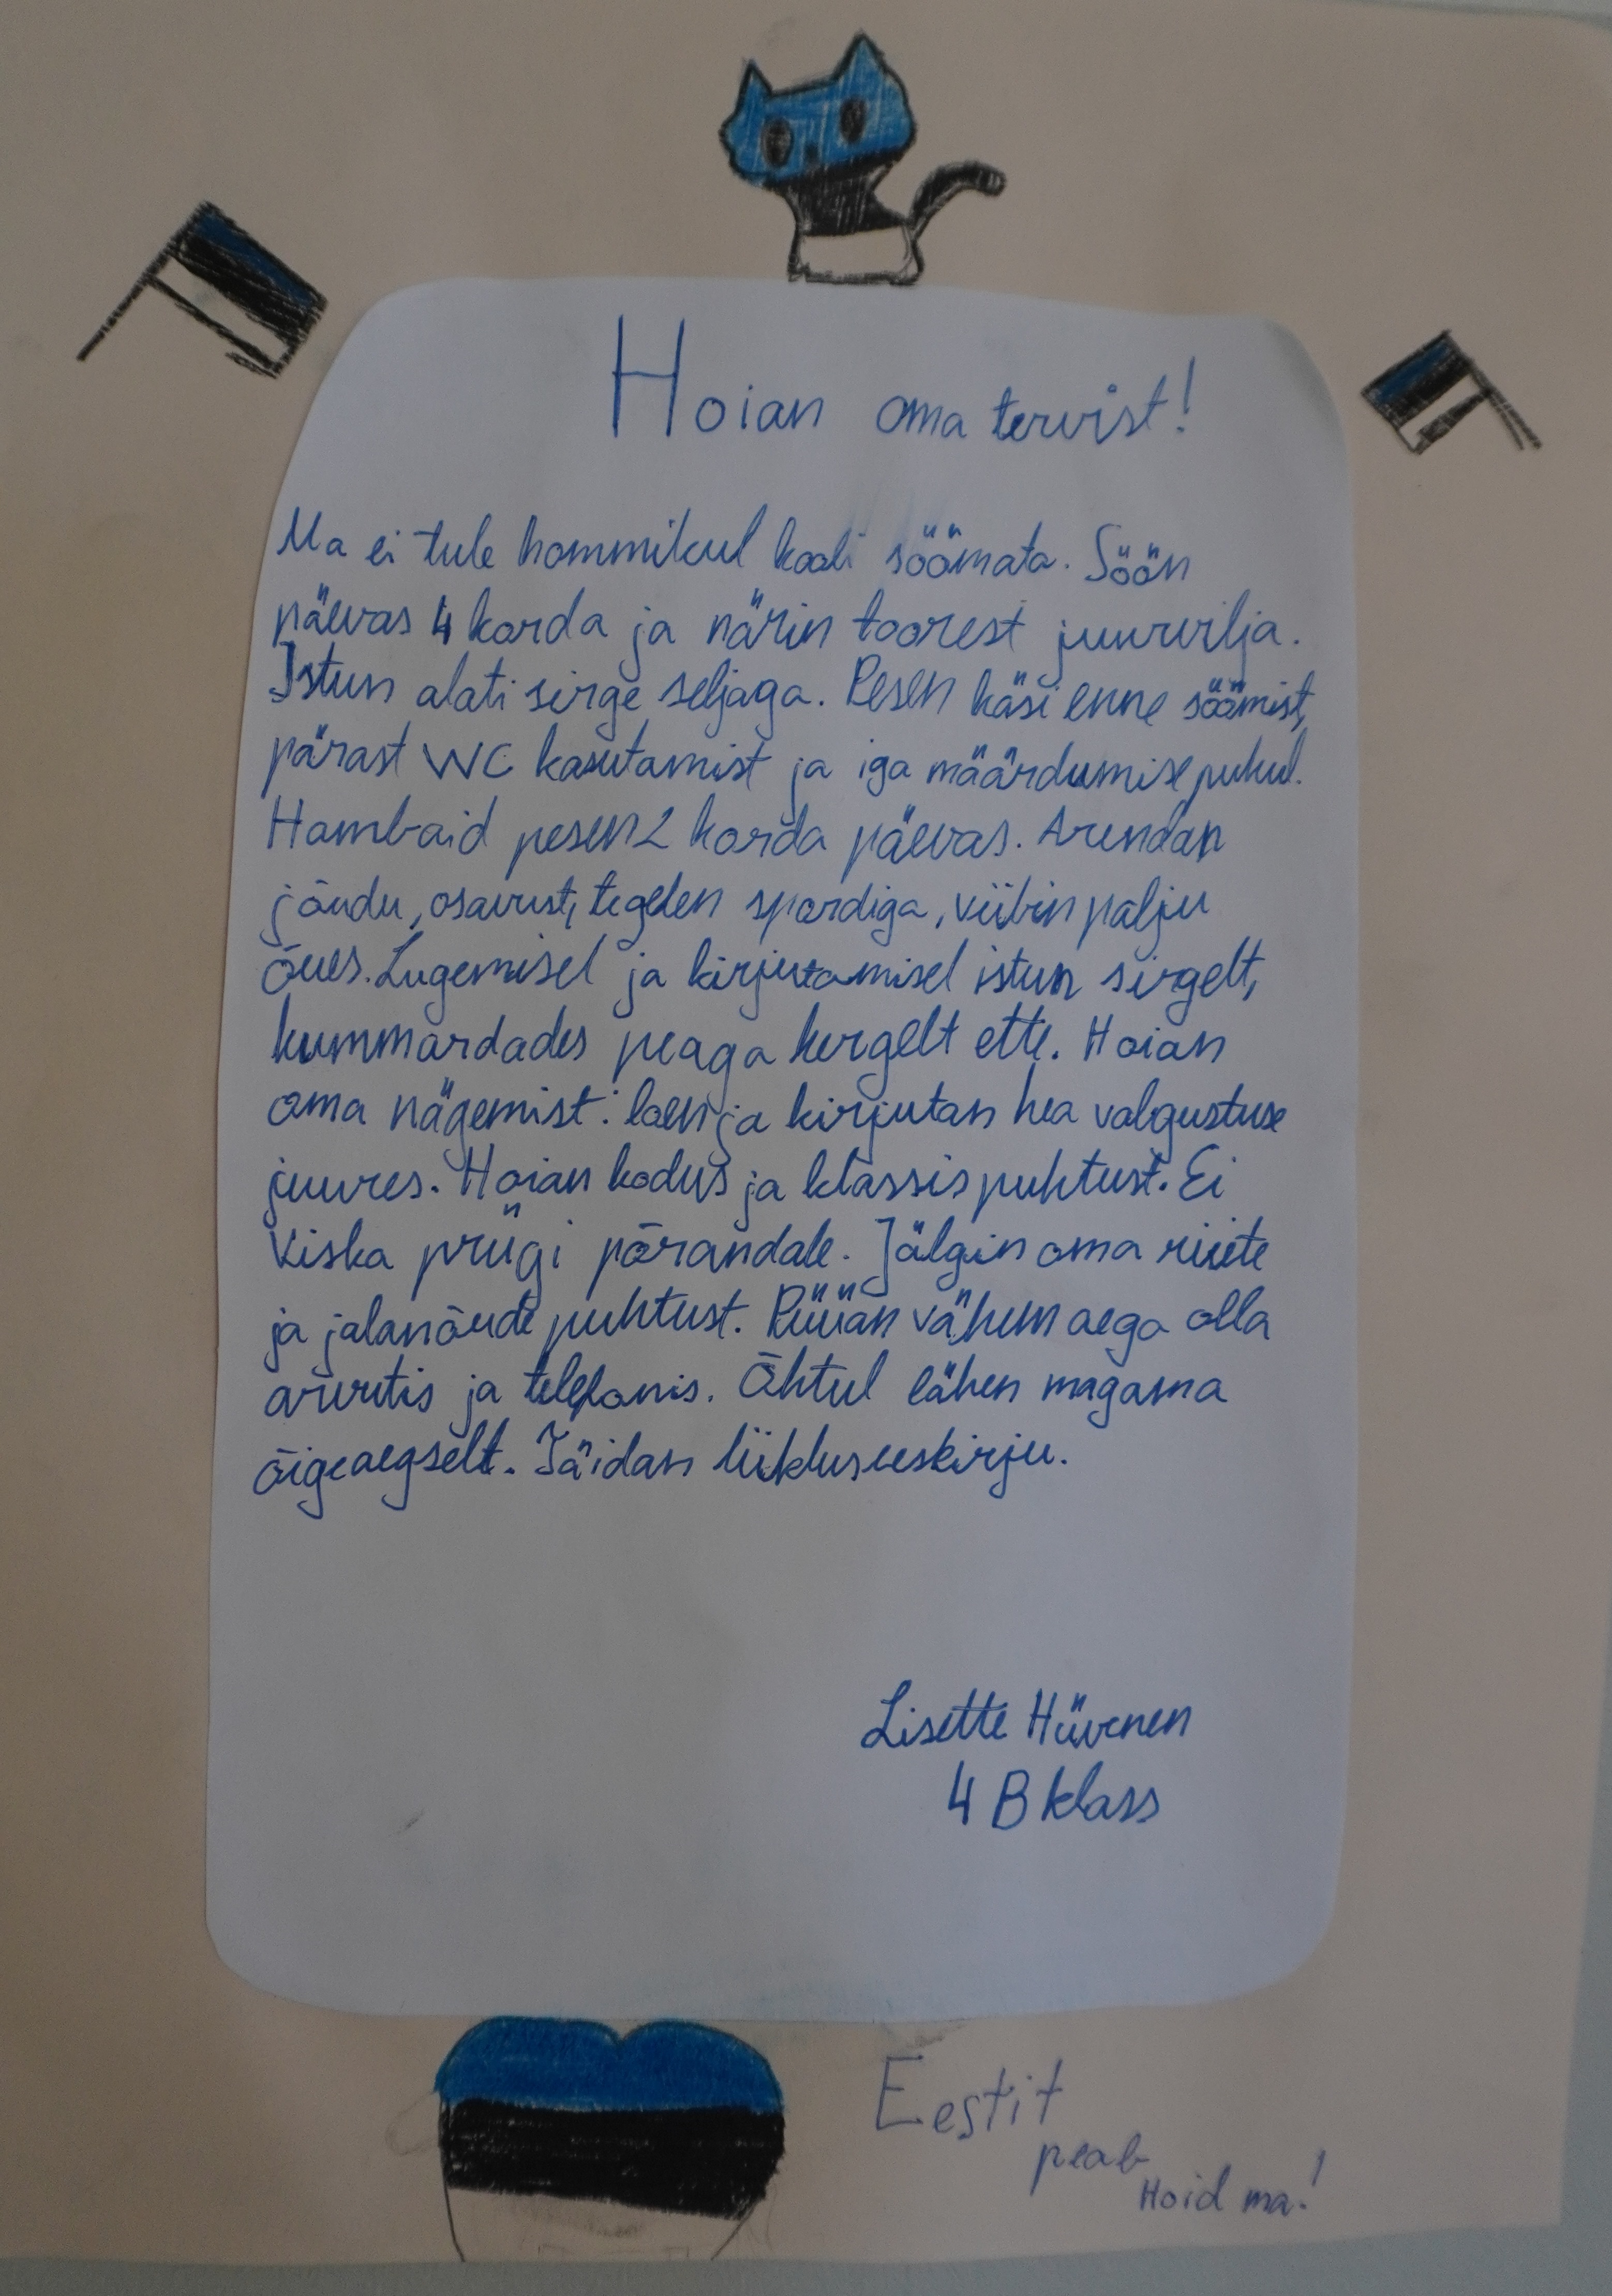 Hoian oma tervist!
Ma ei tule hommikul kooli söömata. Söön
päevas 4 korda ja närin toorest juurvilja.
Istun alati sirge seljaga. Pesen käsi enne söömist,
pärast WC kasutamist ja iga määrdumise puhul.
Hambaid pesen 2 korda päevas. Arendan
jõudu, osavust, tegelen spordiga, viibin palju
õues. Lugemisel ja kirjutamisel istun sirgelt,
kummardades peaga kergelt ette. Hoian
oma nägemist: loen ja kirjutan hea valgustuse
juures. Hoian kodus ja klassis puhtust. Ei
viska prügi põrandale. Jälgin oma riiete
ja jalanõude puhtust. Püüan vähem aega olla
arvutis ja telefonis. Õhtul lähen magama
õigeaegselt. Täidan liikluseeskirju.
Lisette
4 B klass
Eestit
peab
Hoid ma!